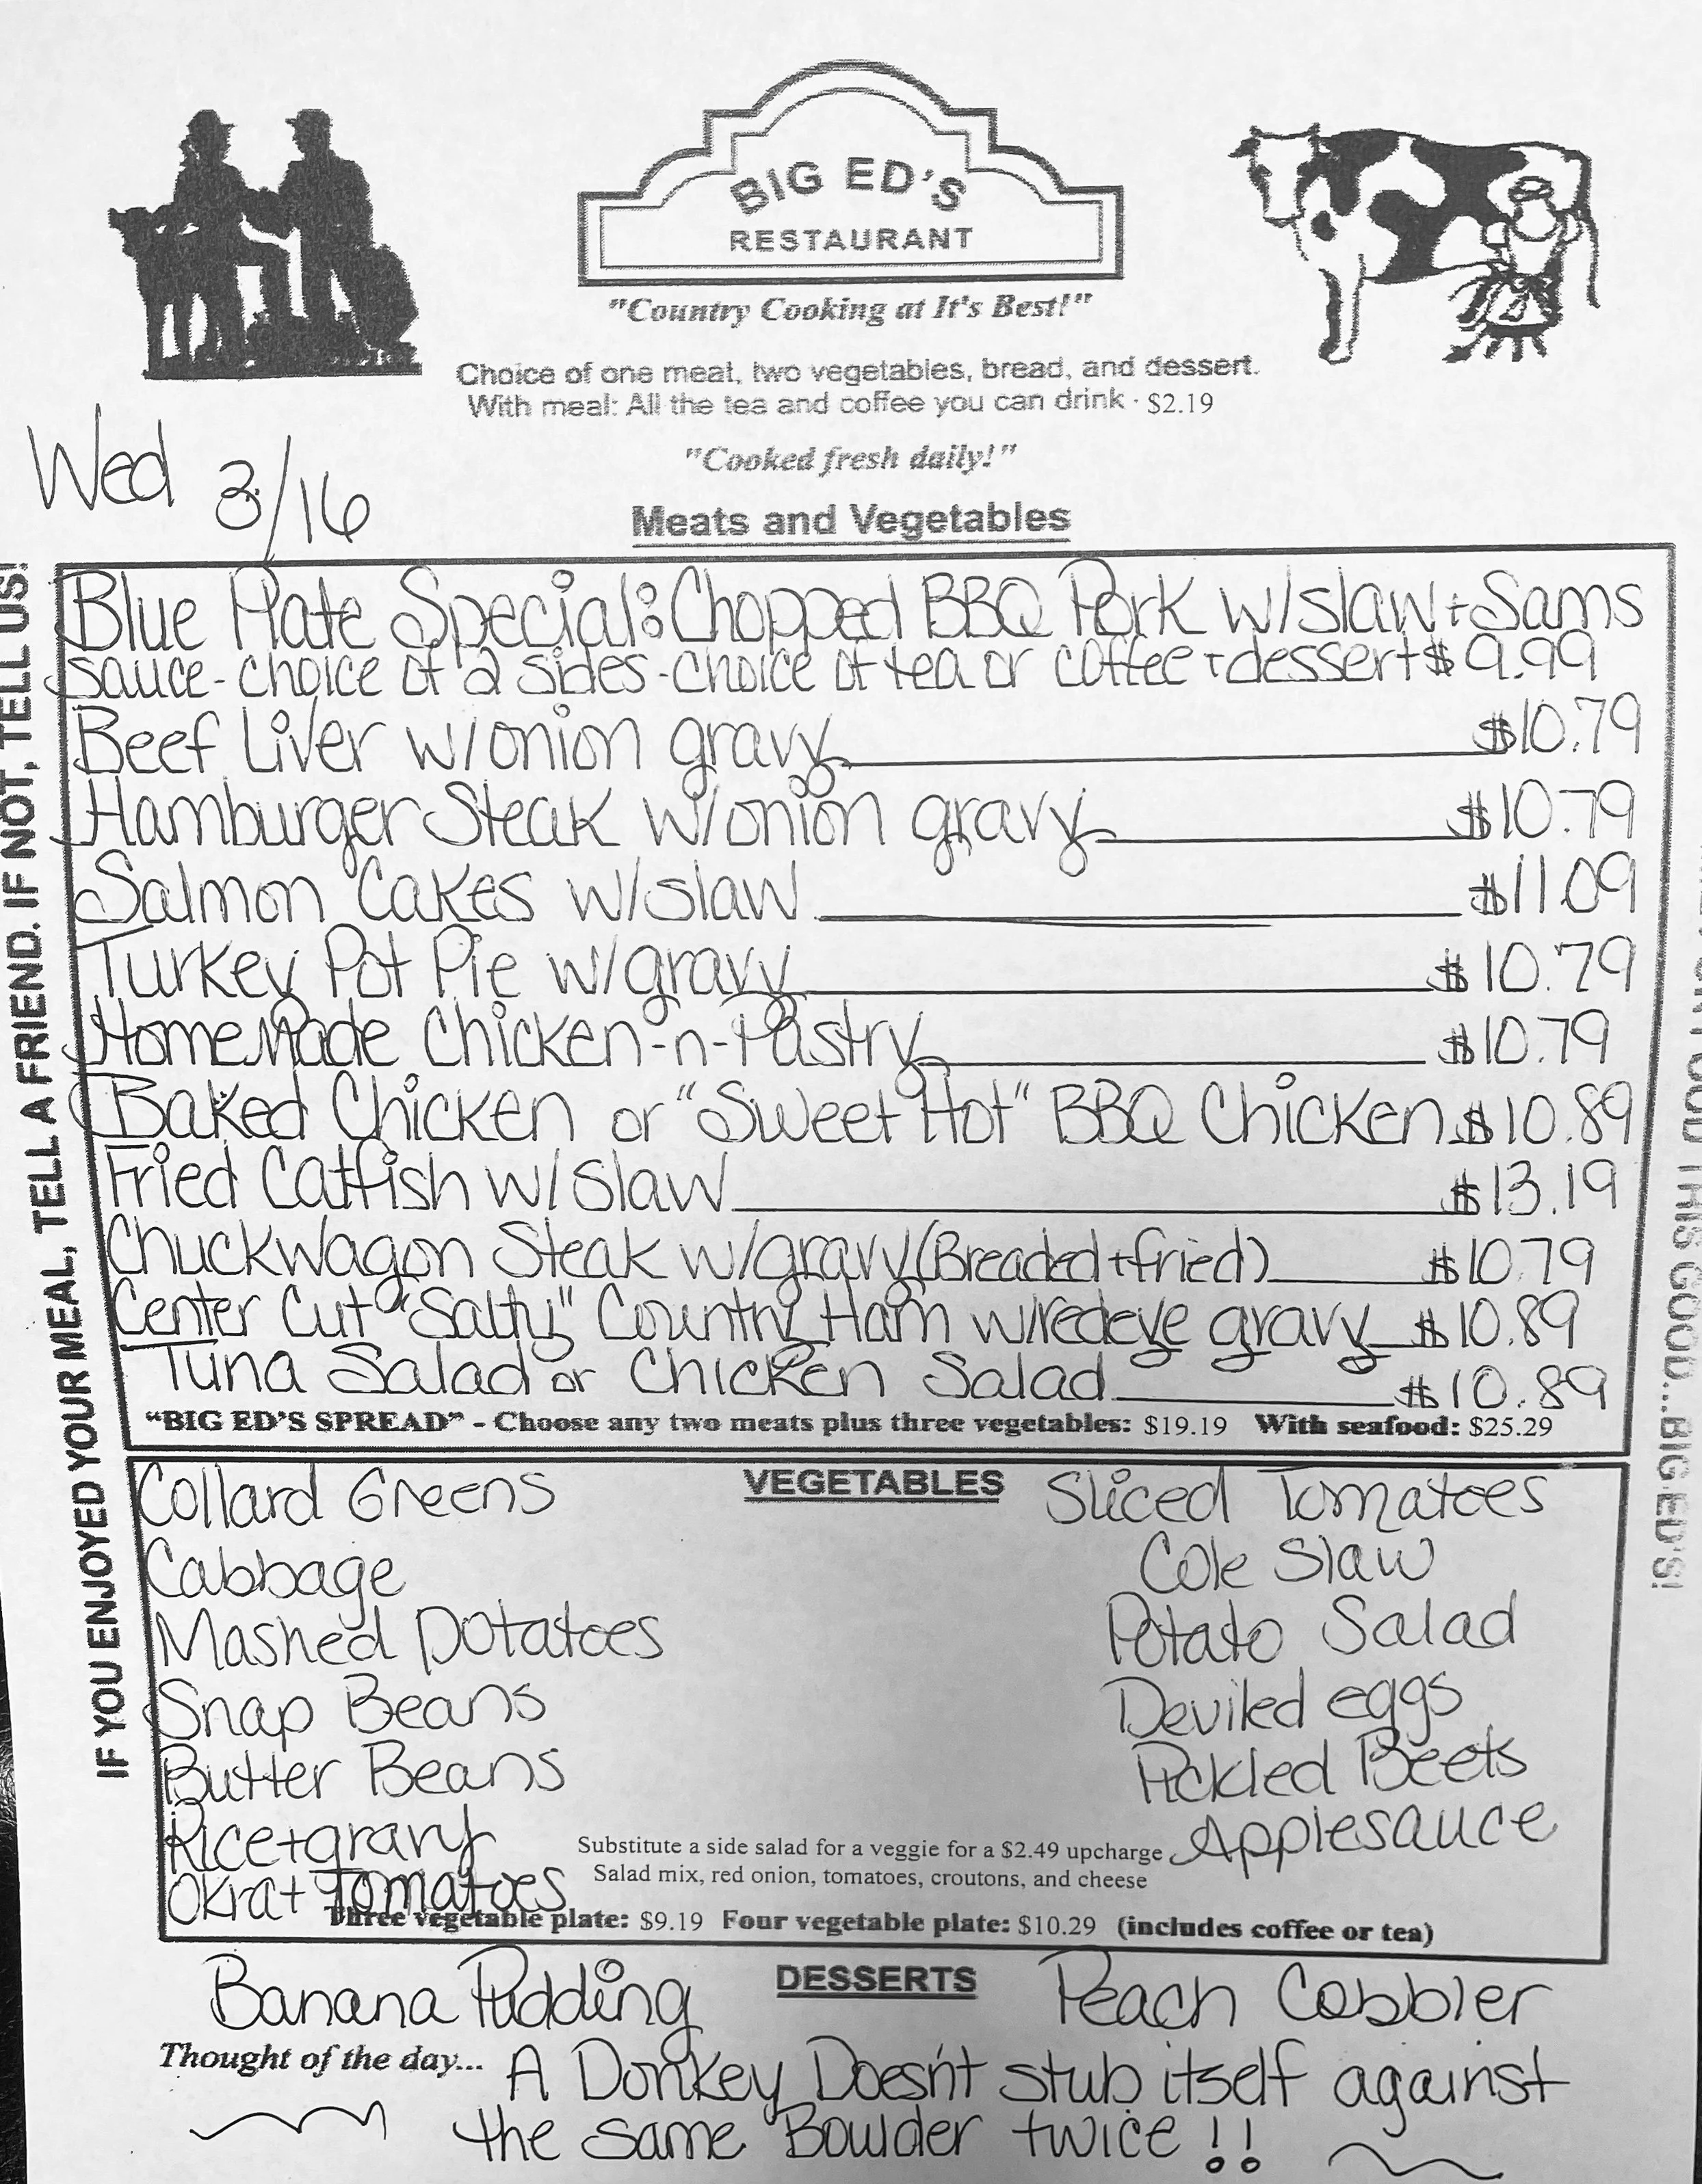 BIG ED'S
RESTAURANT
"Country Cooking at It's Best!"
Choice of one meat, two vegetables, bread, and dessert.
With meal: All the tea and coffee you can drink - $2.19
"Cooked fresh daily!"
Wed 3/16
Meats and Vegetables
Blue Plate Special: Chopped BBQ Pork w/slaw + Sams
sauce - choice of 2 sides - choice of tea or coffee + dessert $9.99
Beef Liver w/onion gravy $10.79
Hamburger Steak w/onion gravy $10.79
Salmon Cakes w/slaw $11.09
Turkey Pot Pie w/gravy $10.79
HomeMade Chicken-n-Pastry $10.79
Baked Chicken or "Sweet Hot" BBQ Chicken $10.89
Fried Catfish w/slaw $13.19
Chuckwagon Steak w/gravy (Breaded + fried) $10.79
Center Cut "Salty" Country Ham w/redeye gravy $10.89
Tuna Salad or Chicken Salad $10.89
"BIG ED'S SPREAD" - Choose any two meats plus three vegetables: $19.19 With seafood: $25.29
VEGETABLES
Collard Greens
Cabbage
Mashed Potatoes
Snap Beans
Butter Beans
Rice + gravy
Okra + Tomatoes
Sliced Tomatoes
Cole Slaw
Potato Salad
Deviled eggs
Pickled Beets
Applesauce
Substitute a side salad for a veggie for a $2.49 upcharge
Salad mix, red onion, tomatoes, croutons, and cheese
Three vegetable plate: $9.19 Four vegetable plate: $10.29 (includes coffee or tea)
DESSERTS
Banana Pudding
Peach Cobbler
Thought of the day... A Donkey Doesn't stub itself against
the same Boulder twice!!
IF YOU ENJOYED YOUR MEAL, TELL A FRIEND. IF NOT, TELL US!
THIS GOOD...BIG ED'S!